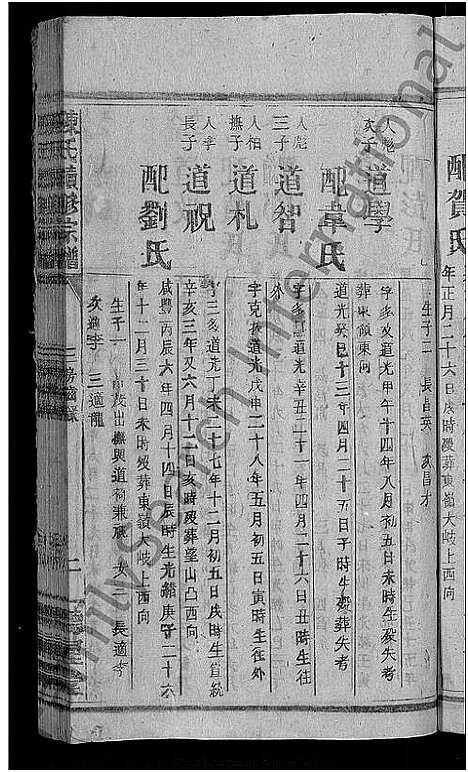 配賀氏
年正月二十六日辰時歿葬東嶺大岐上西向
生子二 長昌英 次昌才
人彪次子
道學
字 道光甲午十四年八月初五日未時生歿失考
葬東嶺東向
配韋氏
道光癸巳十三年四月二十五日子時生歿葬失考
人彪三子
道智
字 道光辛丑二十一年四月二十六日丑時生往
人柏撫子
道札
字克 道光戊申二十八年五月初五日寅時生往外
人孝長子
道祝
字三多道光丁未二十七年十二月初五日戌時生宣統
辛亥三年又六月十二日亥時歿葬望山凸西向
配劉氏
咸豐丙辰六年四月十四日辰時生光緒庚子二十六
年十二月三十日未時歿葬東嶺大岐上西向
生子一 出撫與道 兼祧 女二 長適李
次適李 三適龍
陳氏 修宗譜
FamilySearch International